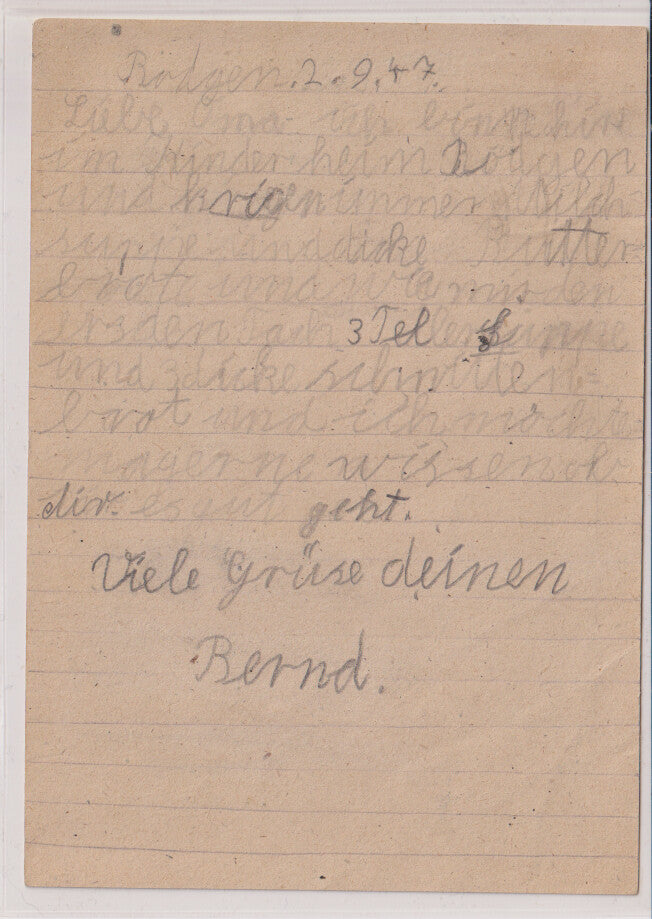 Rödgen. 2. 9. 47.
Liebe Oma ich bin hir
im Kinderheim Rödgen
und krige immer Milch
suppe und dicke Butter-
brot und wir müsden
jeden Tach 3 Teller suppe
und 3 dicke schnitten-
brot und ich möchte
gerne wissen ob
dir es gut geht.
Viele Grüse deinen
Bernd.